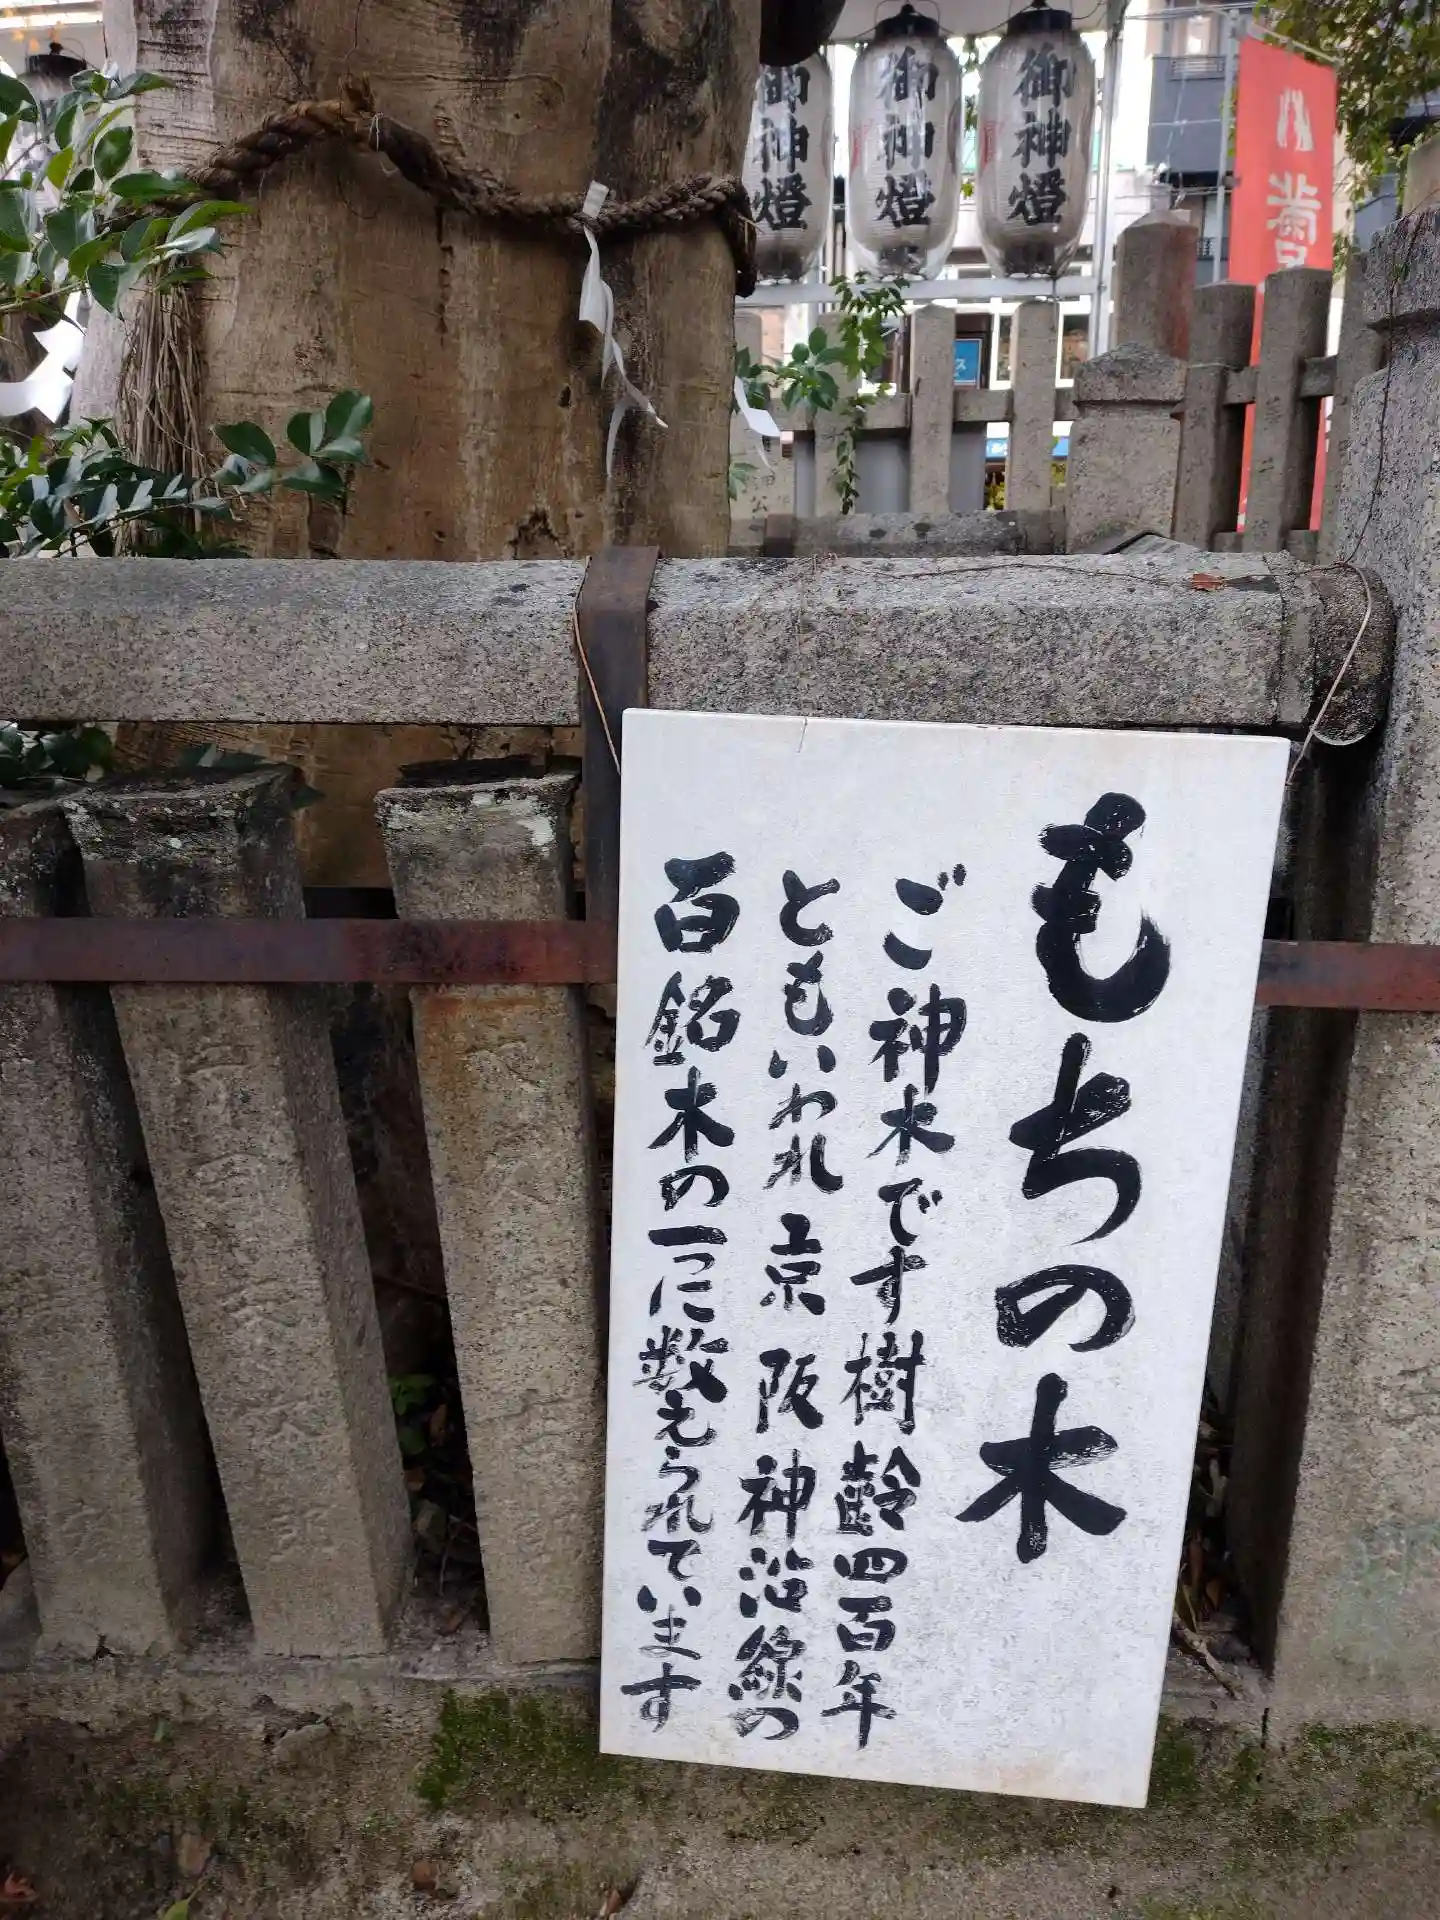 御神燈
御神燈
御神燈
もちの木
ご神木です樹齢四百年
ともいわれ京阪神沿線の
百銘木の一つに数えられています